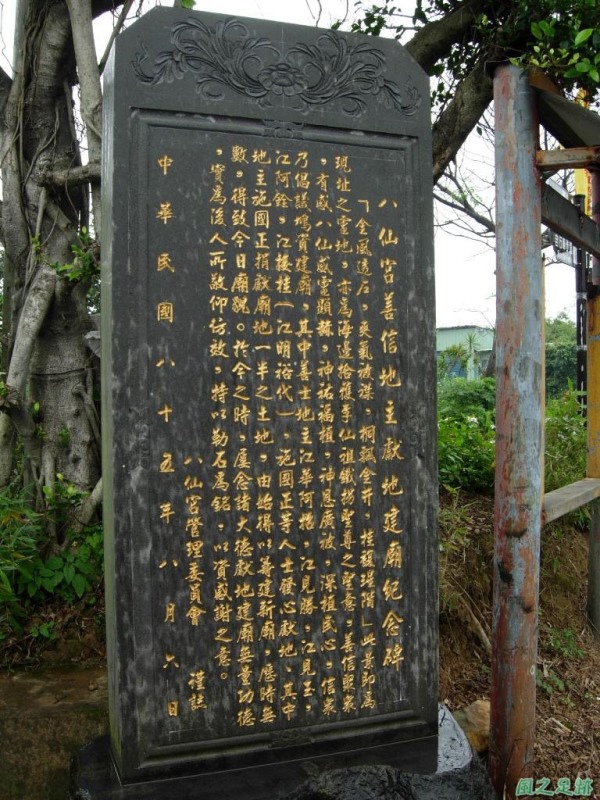 八仙宮善信地主獻地建廟紀念碑
「金風透石,爽氣被襟,桐飄金井,桂馥堦階」此景即為
現址之靈地,亦為海邊拾獲李仙祖鐵拐聖尊之聖意,善信聚衆
,有感八仙威靈顯赫,神祐福植,神恩廣被,深植民心,信衆
乃倡議鳩資建廟,其中善士地主江華阿格、江見勝、江見玉、
江阿銓、江接桂(江明裕代)、施國正等人士發心獻地,其中
地主施國正捐獻廟地一半之土地,由始得以籌建新廟,歷時無
數,得致今日廟貌。於今之時,屢念諸大德獻地建廟無量功德
,實為後人所敬仰仿效,特以勒石為銘,以資感謝之意。
八仙宮管理委員會 謹誌
中華民國八十五年八月六日
風之足跡